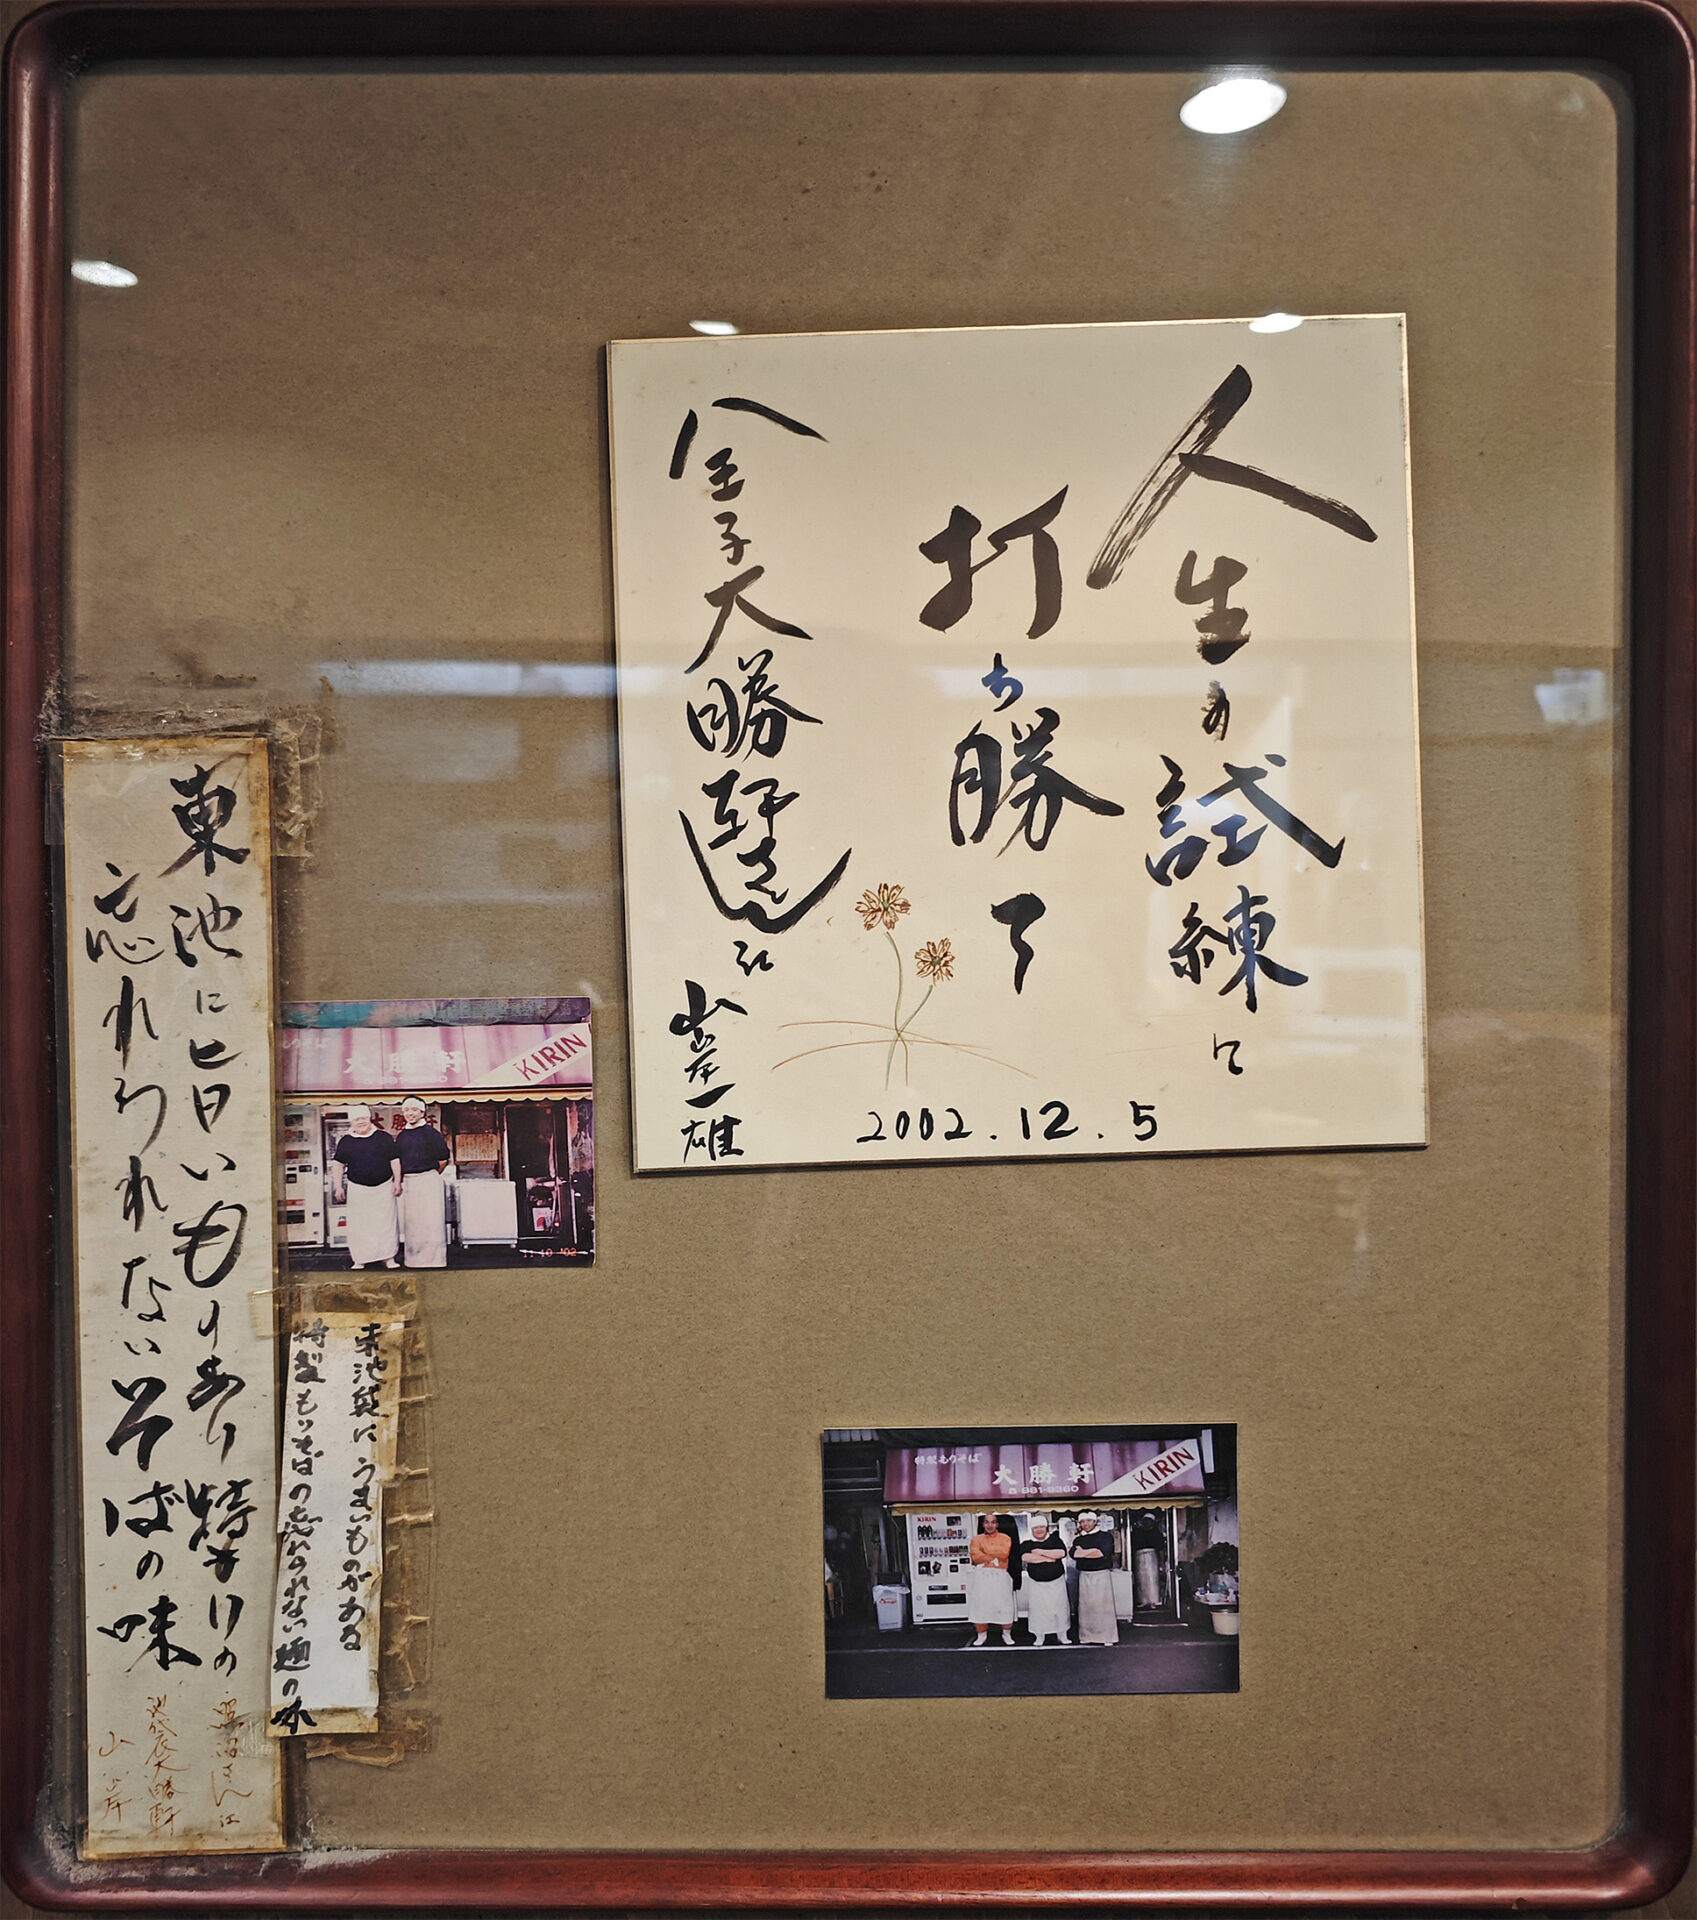 人生の試練に
打ち勝て
八王子大勝軒さん江
山岸一雄
2002.12.5
東池に旨いもりあり特もりの
忘れられないそばの味
さん江
池袋大勝軒
山岸
KIRIN
大勝軒
大勝軒
11 10 '02
東池袋にうまいものがある
特製もりそばの忘れられない麺の味
特製もりそば
大勝軒
981-9360
KIRIN
KIRIN